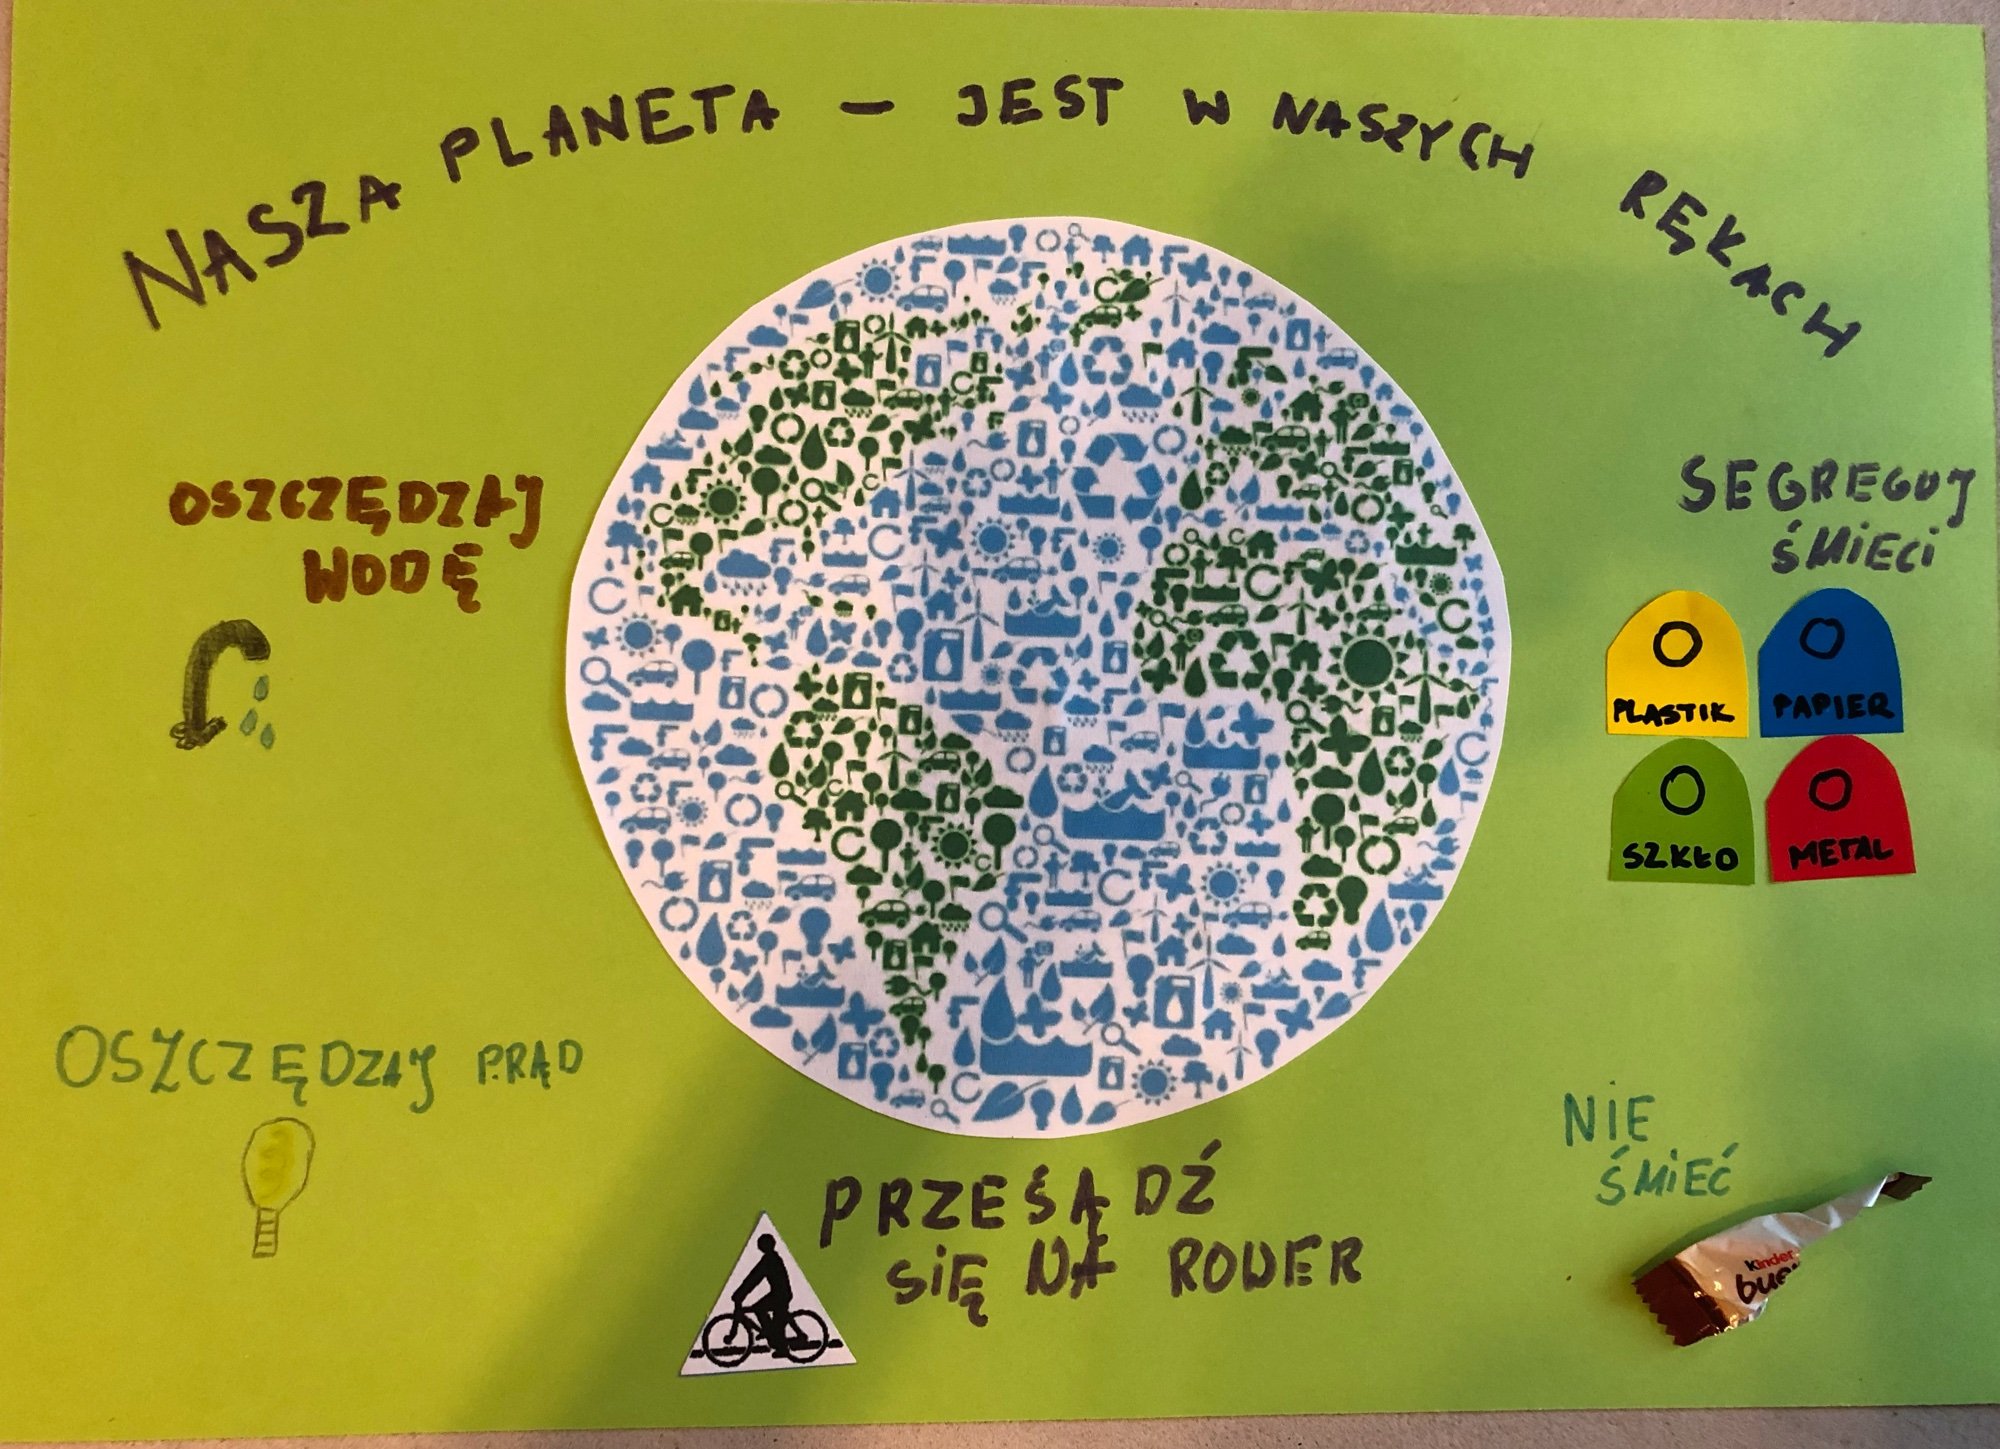 NASZA PLANETA - JEST W NASZYCH RĘKACH
OSZCZĘDZAJ
WODĘ
SEGREGUJ
ŚMIECI
PLASTIK
PAPIER
SZKŁO
METAL
OSZCZĘDZAJ PRĄD
NIE
ŚMIEĆ
PRZEŚĄDŹ
SIĘ NA ROWER
Kinder